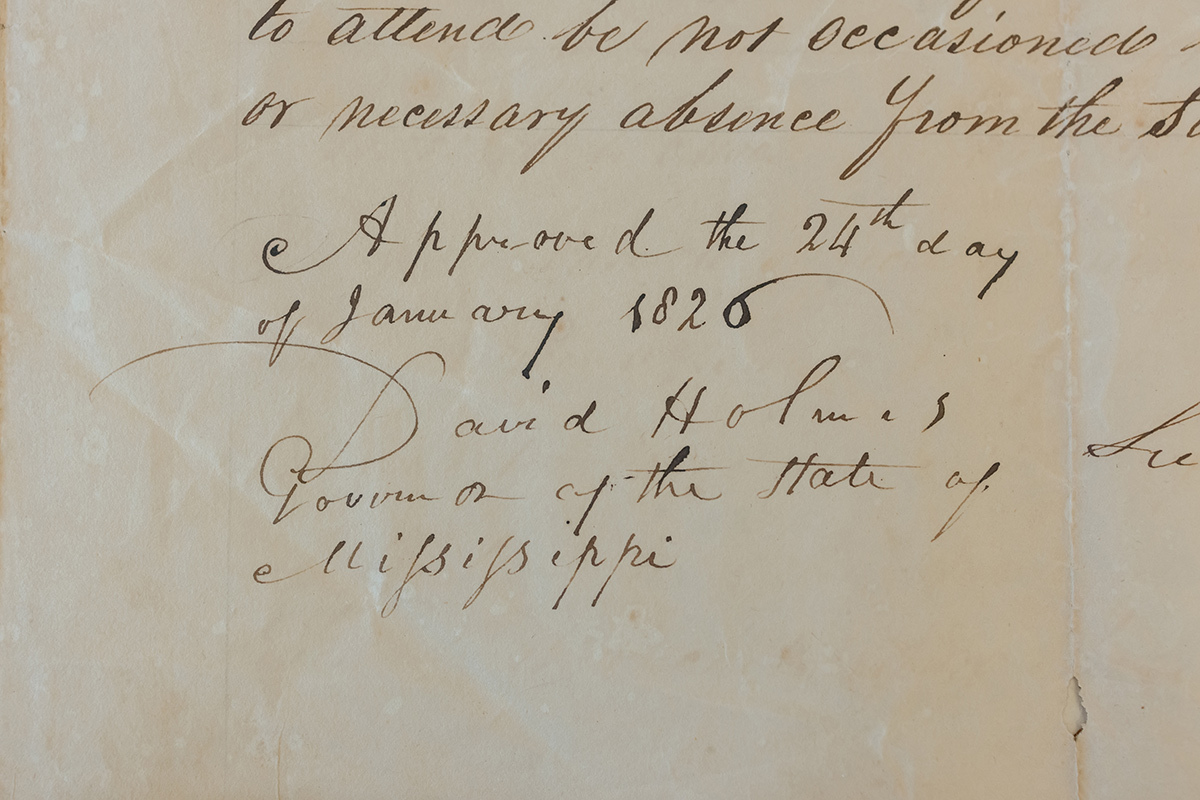 to attend be not occasioned
or necessary absence from the
Approved the 24th day
of January 1826
David Holmes
Governor of the State of
Mississippi